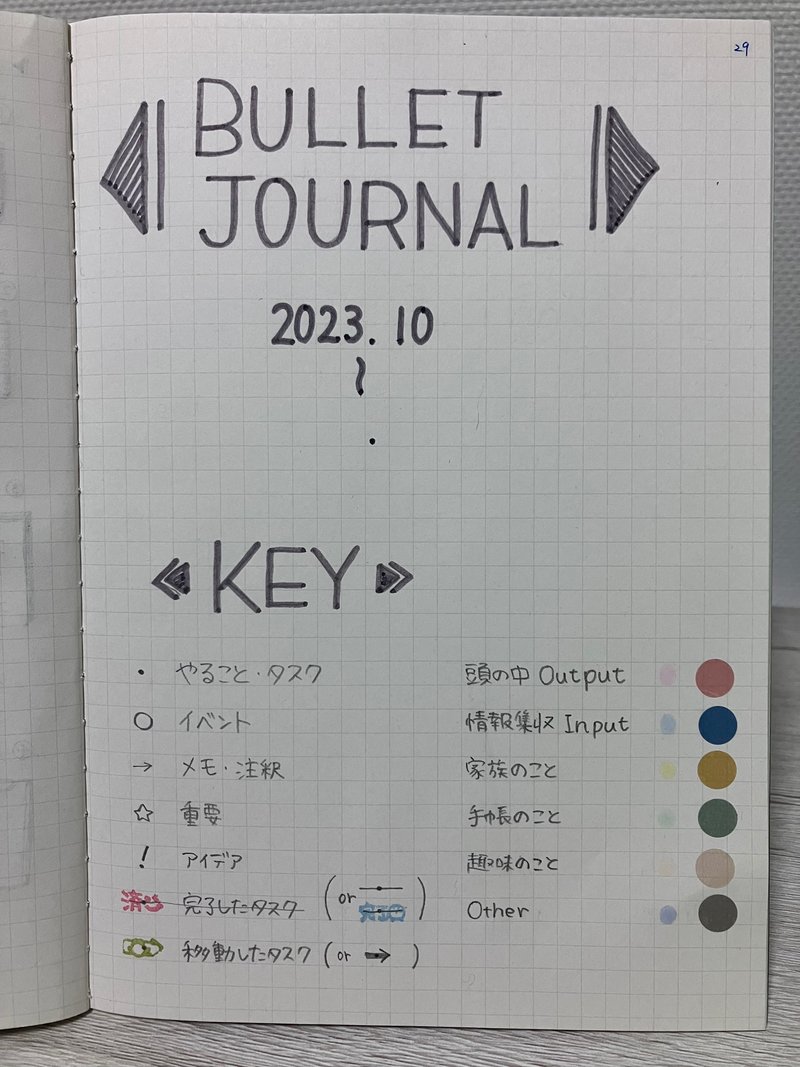 29
BULLET
JOURNAL
2023.10
〜
.
KEY
・ やること・タスク
○ イベント
→ メモ・注釈
☆ 重要
! アイデア
済 完了したタスク (or 完了)
移動したタスク (or → )
頭の中 Output
情報集収 Input
家族のこと
手帳のこと
趣味のこと
Other